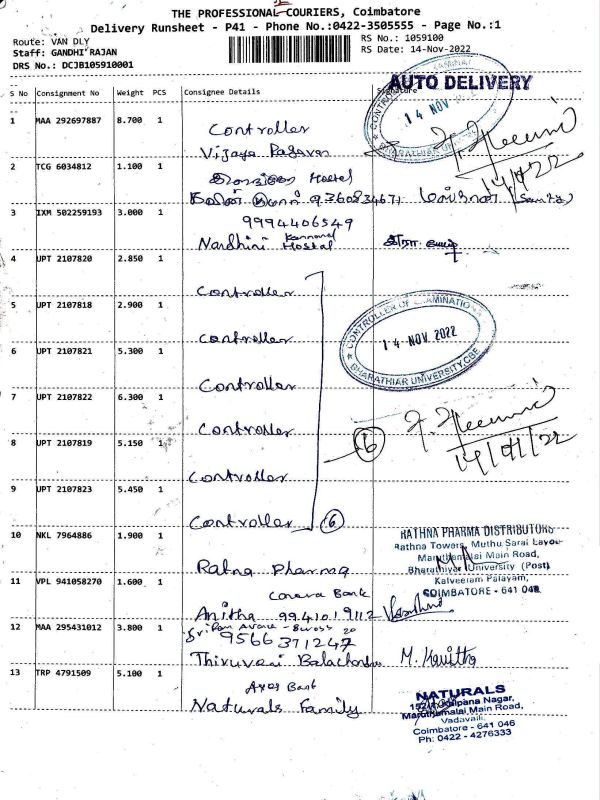 THE PROFESSIONAL COURIERS, Coimbatore
Delivery Runsheet - P41 - Phone No.:0422-3505555 - Page No.:1
Route: VAN DLY
RS No.: 1059100
Staff: GANDHI RAJAN
RS Date: 14-Nov-2022
DRS No.: DCJB105910001
AUTO DELIVERY
S No Consignment No Weight PCS Consignee Details Signature
14 NOV
BHARATHIAR
1 MAA 292697887 8.700 1 Controller
Vijaya
14/11/22
2 TCG 6034812 1.100 1 Hostel
9360834671
3 IXM 502259193 3.000 1 9994406549
Nandhini Hostel
4 UPT 2107820 2.850 1 Controller
5 UPT 2107818 2.900 1 Controller
CONTROLLER OF EXAMINATIONS
14 NOV 2022
BHARATHIAR UNIVERSITY, CBE
6 UPT 2107821 5.300 1 Controller
7 UPT 2107822 6.300 1 Controller
8 UPT 2107819 5.150 1 Controller
6
14/11/22
9 UPT 2107823 5.450 1 Controller 6
10 NKL 7964886 1.900 1 Ratna Pharma
RATHNA PHARMA DISTRIBUTORS
Rathna Towers, Muthu Sarai Layout
Maruthamalai Main Road,
Bharathiyar University (Post)
Kalveeram Palayam,
COIMBATORE - 641 046
11 VPL 941058270 1.600 1 Canara Bank
Anitha 9941019112
12 MAA 295431012 3.800 1
9566371247
Thiruveni Balachandra M. Kavitha
13 TRP 4791509 5.100 1 Axes Bank
Naturals Family
NATURALS
Kalpana Nagar,
Maruthamalai Main Road,
Vadavalli,
Coimbatore - 641 046
Ph: 0422 - 4276333